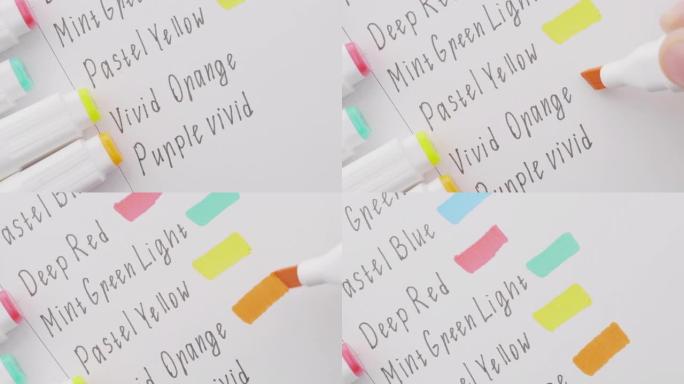 Mint Green Light
Pastel Yellow
Vivid Orange
Purple vivid
Deep Red
Mint Green Light
Pastel Yellow
Vivid Orange
Purple vivid
astel Blu
Deep Red
Mint Green Light
Pastel Yellow
Vivid Orange
vivid
Green
astel Blue
Deep Red
Mint Green Light
Yellow